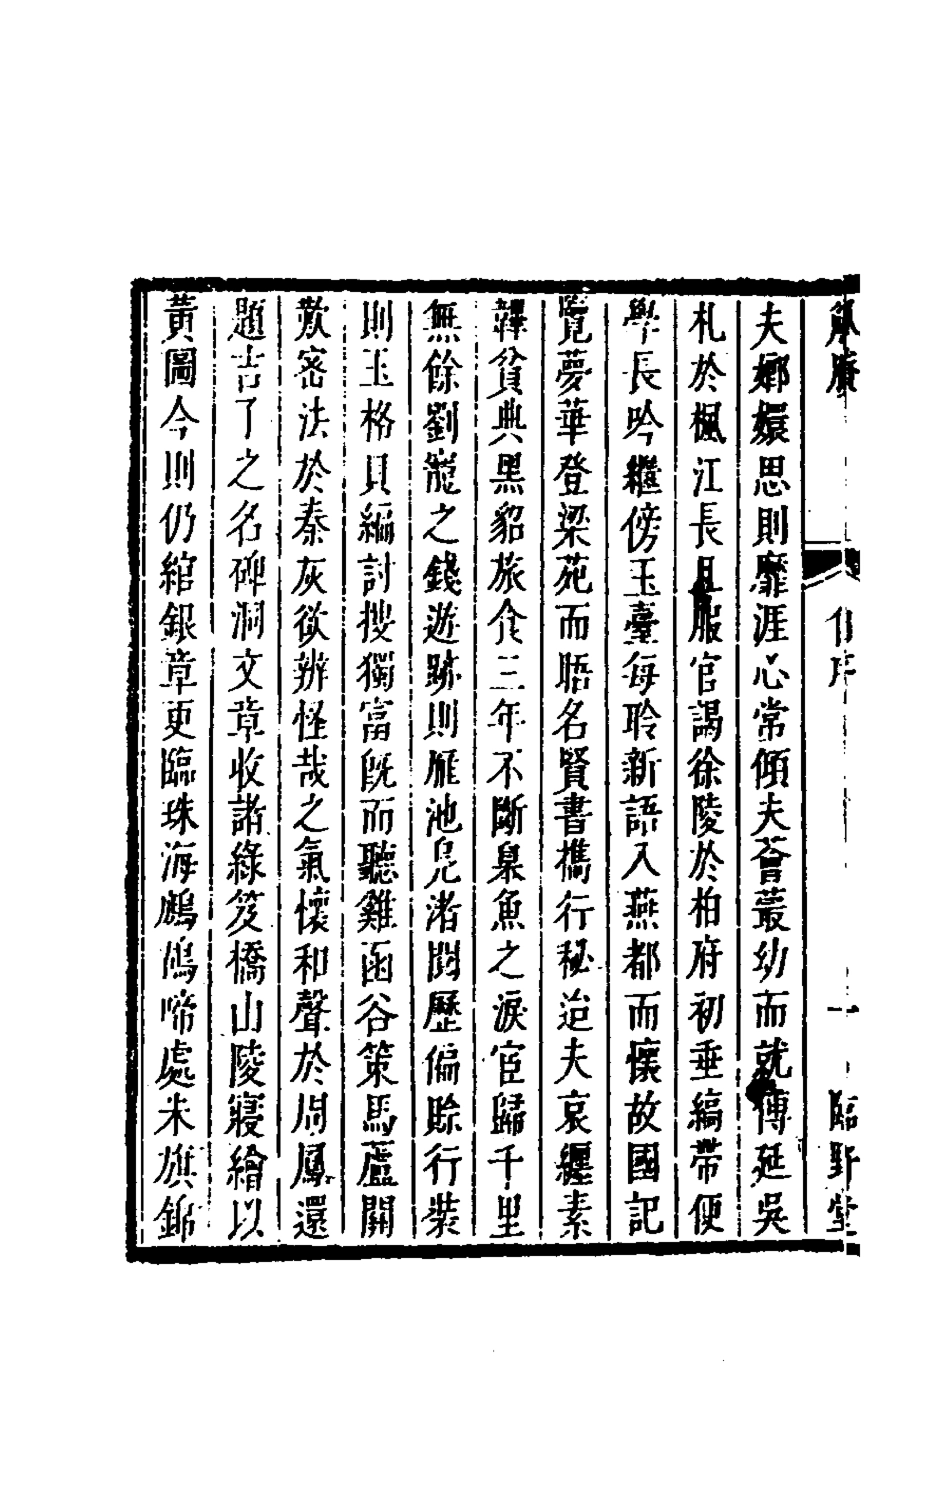 夫娜嬛思則靡涯心常傾夫薈叢幼而就傅延吳
札於楓江長且服官謁徐陵於柏府初垂縞帶便
學長吟繼傍玉臺每聆新語入燕都而懷故國記
覽夢華登梁苑而晤名賢書檇行秘迨夫哀纏素
韠貧典黑貂旅食三年不斷臯魚之淚宦歸千里
無餘劉寵之錢遊跡則雁池凫渚閱歷偏賒行裝
則玉格貝編討搜獨富旣而聽雞函谷策馬蘆關
歎密法於秦灰欲辨怪哉之氣懷和聲於周鳳還
題吉了之名碑洞文章收諸綠笈橋山陵寢繪以
黃圖今則仍綰銀章更臨珠海鷓鴣啼處朱旗錦
序
一
臨野堂